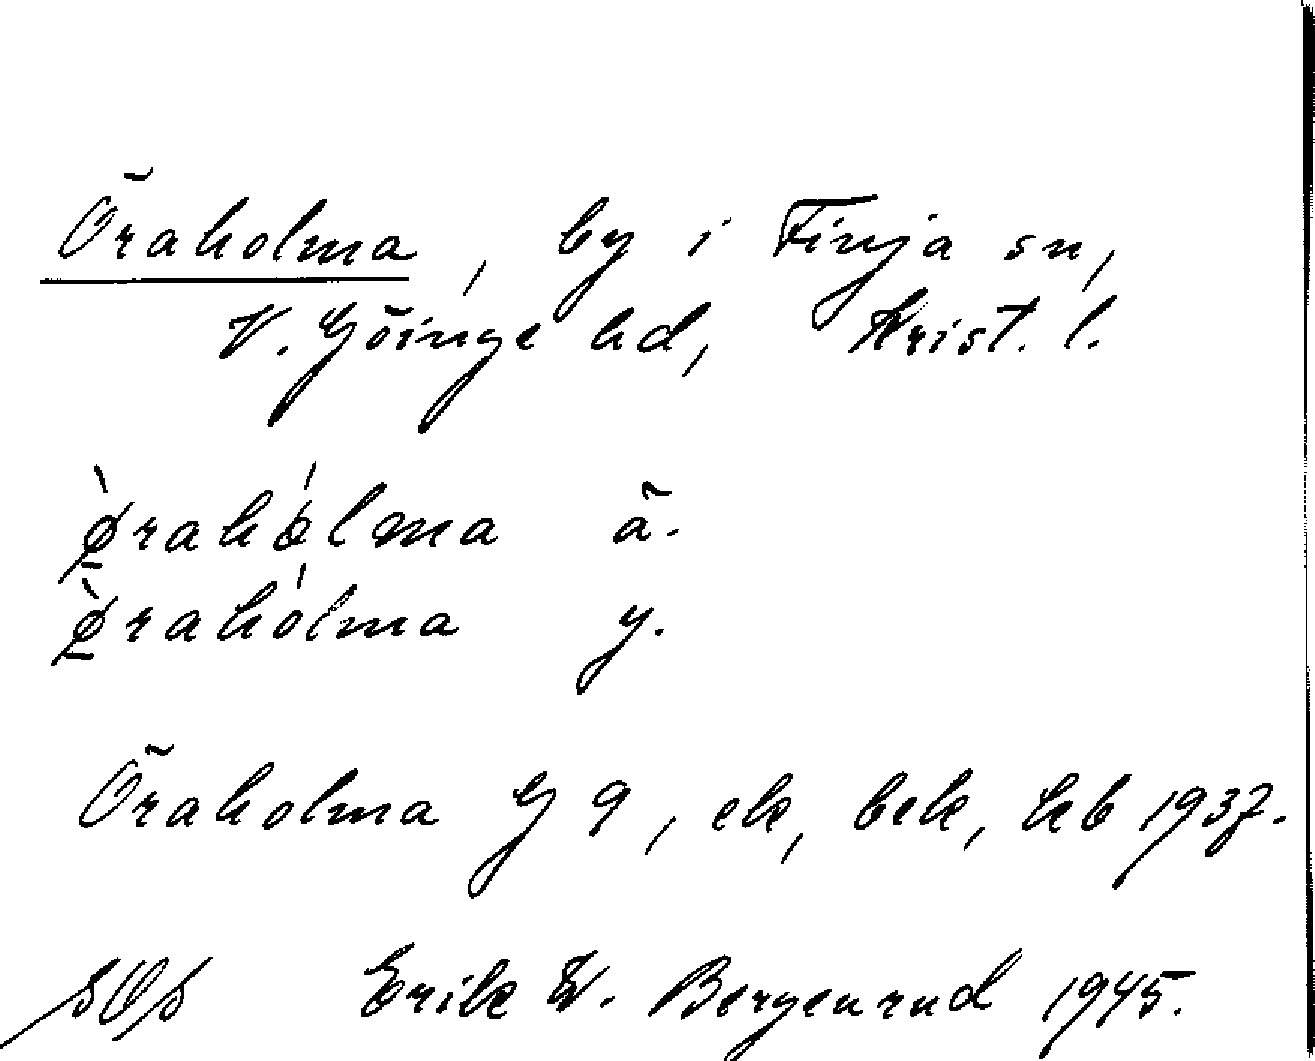 Öraholma, by i Finja sn,
V. Göinge hd, Krist. l.
ø̀rahólma ä.
ø̀rahólma y.
Öraholma G 9, ek, bek, kb 1937.
SOS Erik W. Bergenrud 1945.